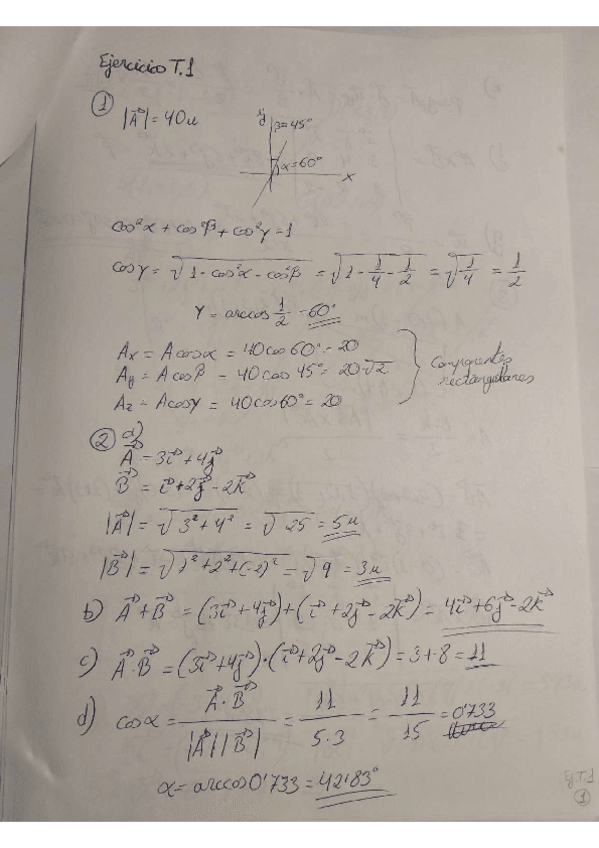 Ejercicio T.1
①
|A⃗| = 40u
y
β=45°
α=60°
x
cos²α + cos²β + cos²γ = 1
cosγ = √(1 - cos²α - cos²β) = √(1 - 1/4 - 1/2) = √(1/4) = 1/2
γ = arccos 1/2 = 60°
Ax = A cosα = 40cos60° = 20
Ay = A cosβ = 40cos45° = 20√2
Az = A cosγ = 40cos60° = 20
Componentes
rectangulares
② a)
A⃗ = 3i⃗ + 4j⃗
B⃗ = i⃗ + 2j⃗ - 2k⃗
|A⃗| = √(3² + 4²) = √25 = 5u
|B⃗| = √(1² + 2² + (-2)²) = √9 = 3u
b) A⃗ + B⃗ = (3i⃗ + 4j⃗) + (i⃗ + 2j⃗ - 2k⃗) = 4i⃗ + 6j⃗ - 2k⃗
c) A⃗ · B⃗ = (3i⃗ + 4j⃗) · (i⃗ + 2j⃗ - 2k⃗) = 3 + 8 = 11
d) cosα = A⃗ · B⃗ / |A⃗| |B⃗| = 11 / 5·3 = 11/15 = 0'733
α = arccos 0'733 = 42'83°
①